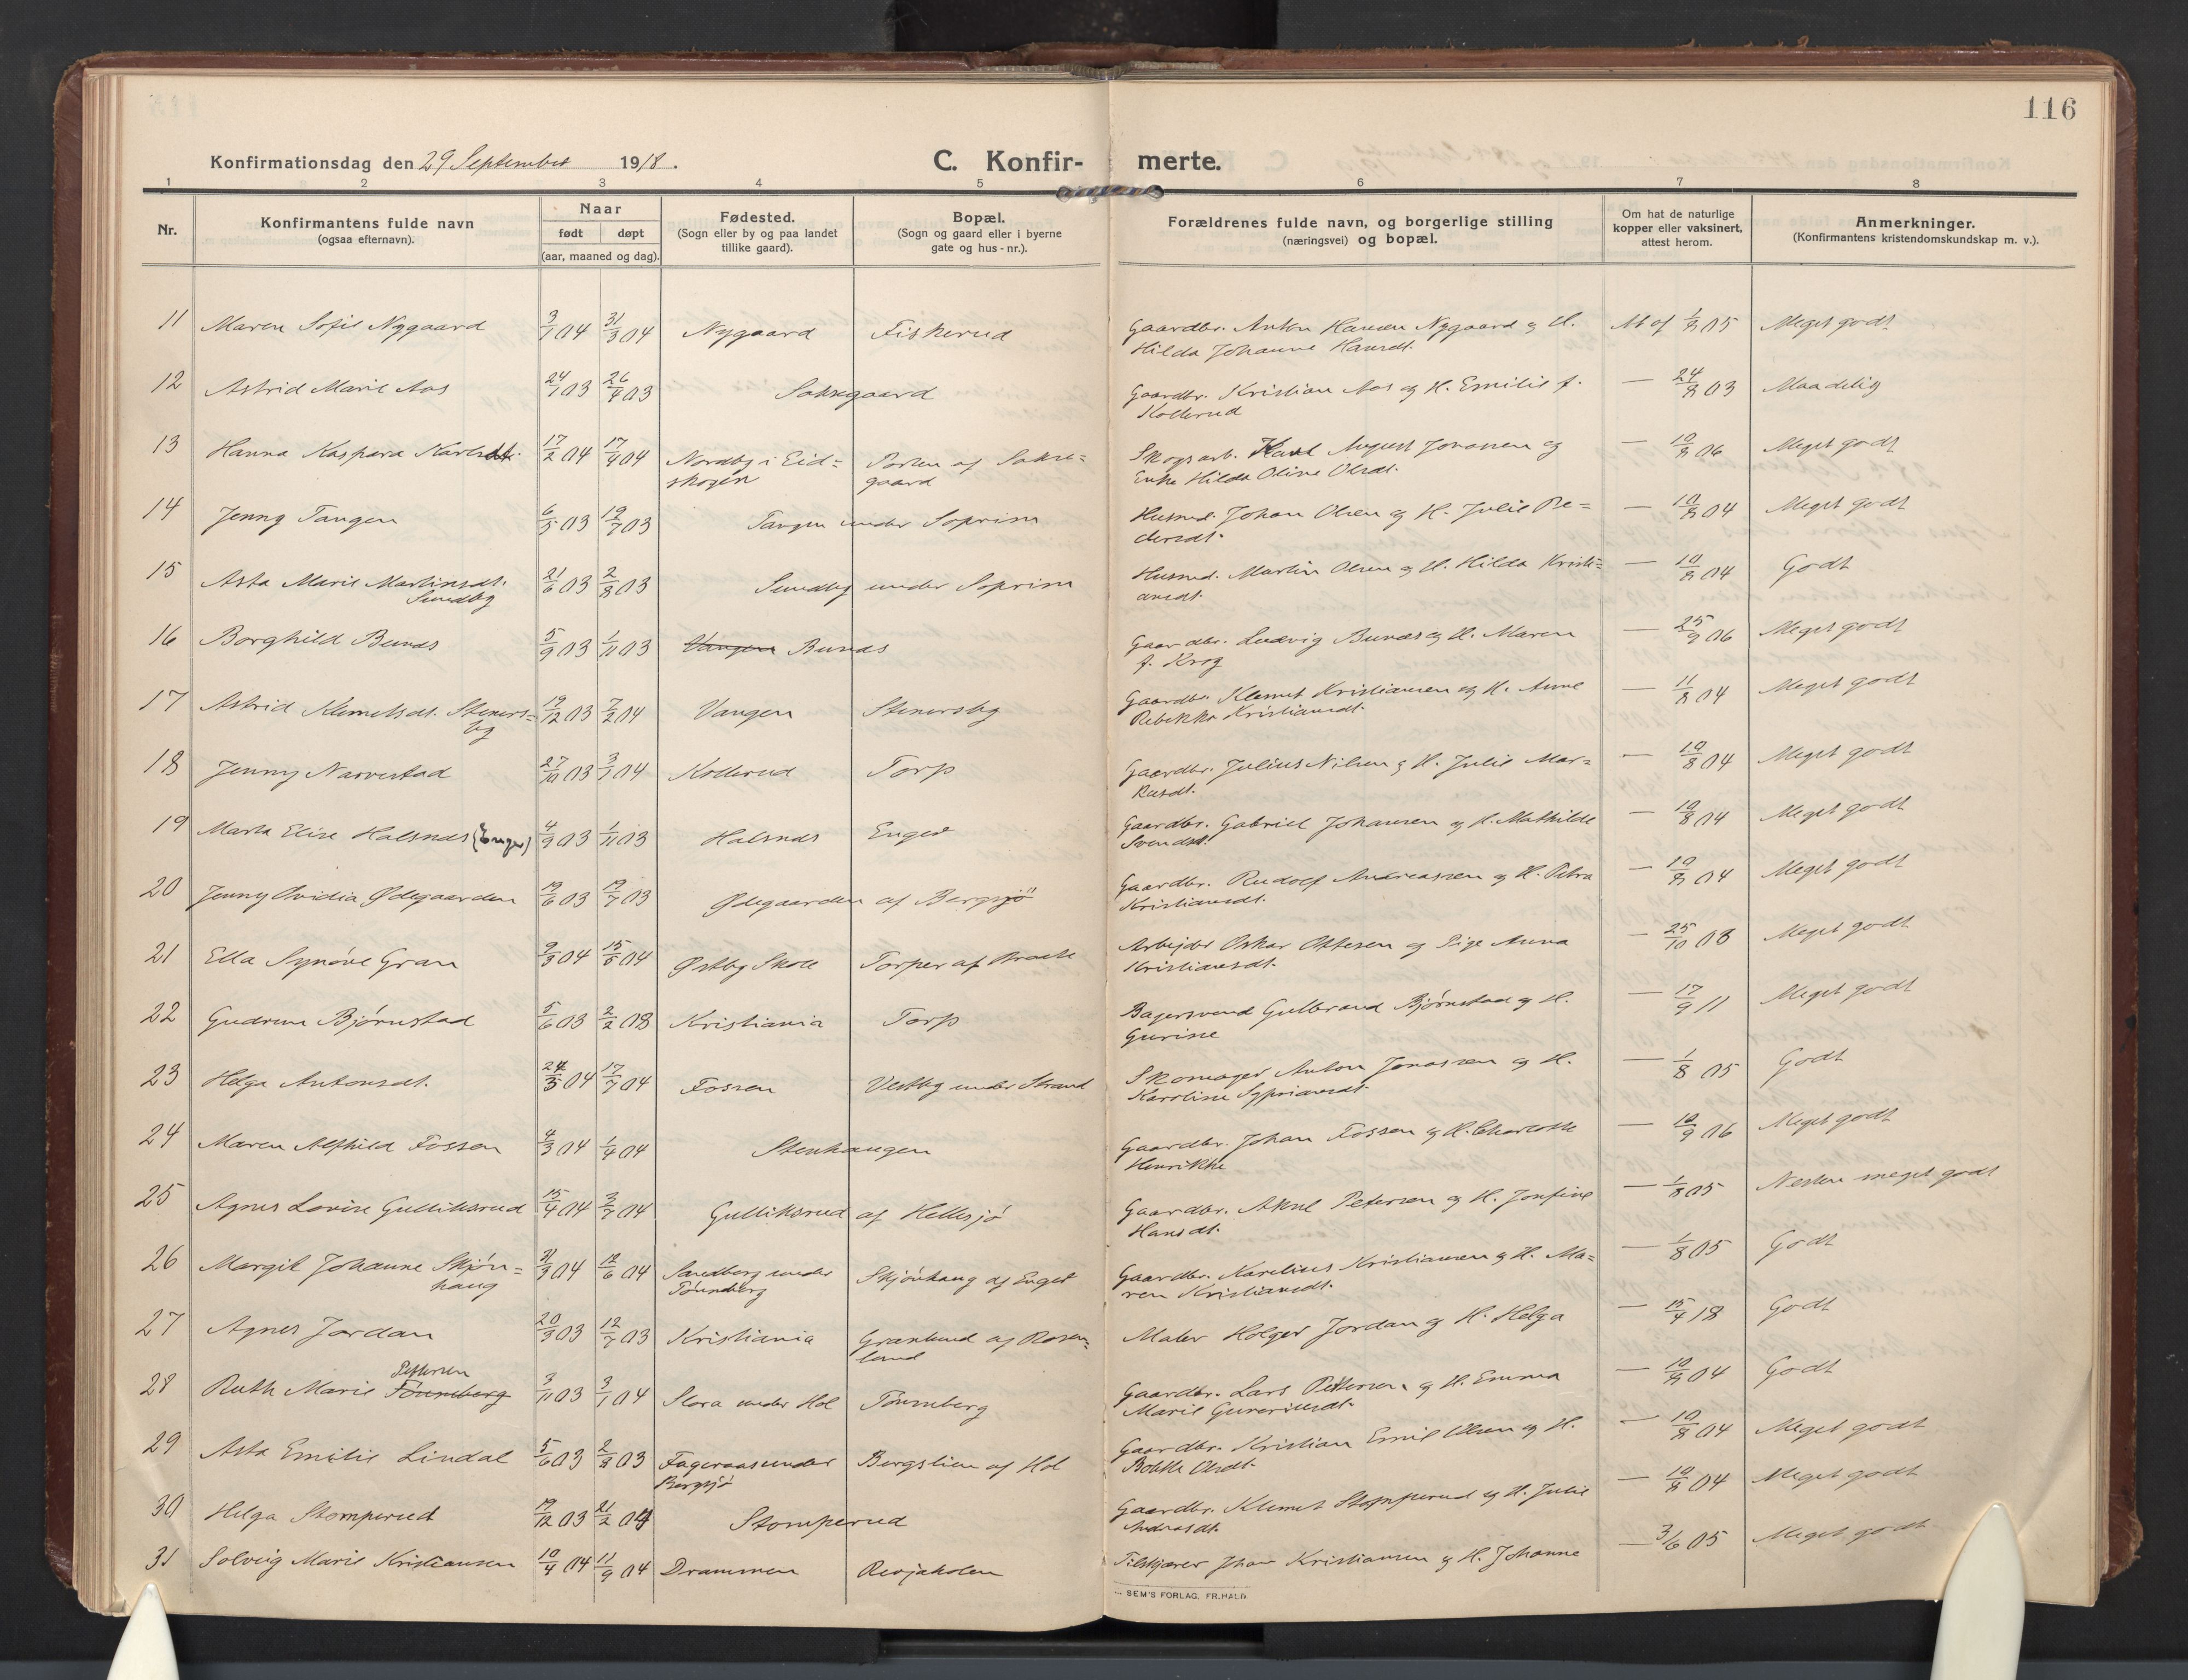 116
Konfirmationsdag den 29 September 1918.
C. Konfirmerte.
1 2 3 4 5 6 7 8
Nr.
Konfirmantens fulde navn
(ogsaa efternavn).
Naar
født døpt
(aar, maaned og dag).
Fødested.
(Sogn eller by og paa landet
tillike gaard).
Bopæl.
(Sogn og gaard eller i byerne
gate og hus-nr.).
Forældrenes fulde navn, og borgerlige stilling
(næringsvei) og bopæl.
Om hat de naturlige
kopper eller vaksinert,
attest herom.
Anmerkninger.
(Konfirmantens kristendomskundskap m. v.).
11 Maren Sofie Nygaard 3/1 04 31/3 04 Nygaard Fiskerud Gaardbr. Anton Hansen Nygaard og H. At af 1/8 05 Meget godt
Hilda Johanne Hansdt.
12 Astrid Marie Aas 24/1 03 26/4 03 Saksegaard Gaardbr. Kristian Aas og H. Emilie f. — 24/8 03 Maadelig
Kollerud
13 Hanna Kaspara Karlsdt. 17/2 04 17/4 04 Nordby i Eid= Skogsarb. Karl August Jonassen og — 10/8 06 Meget godt
skogen gaard Enke Hilda Oline Olsdt.
14 Jenny Tangen 6/5 03 19/7 03 Tangen under Soprim Husmd. Johan Olsen og H. Julie Pe= — 10/8 04 Meget godt
dersdt.
15 Asta Marie Martinsdt. 21/6 03 2/8 03 Sundby under Soprim Husmd. Martin Olsen og H. Hilda Kristi= — 10/8 04 Godt
Sundby ansdt.
16 Borghild Bunæs 5/9 03 1/11 03 Vangen Bunæs Gaardbr. Ludvig Bunæs og H. Maren — 25/9 06 Meget godt
f. Krog
17 Astrid Klemetsdt. Steners= 19/12 03 7/2 04 Vangen Stenersby Gaardbr. Klemet Kristiansen og H. Anne — 11/8 04 Meget godt
by Rebekka Kristiansdt.
18 Jenny Narvestad 27/10 03 3/1 04 Kollerud Torp Gaardbr. Julius Nilsen og H. Julie Mar= — 10/8 04 Meget godt
kusdt.
19 Marta Elise Halsnæs (Enger) 4/9 03 1/11 03 Halsnæs Enger Gaardbr. Gabriel Johansen og H. Mathilde — 10/8 04 Meget godt
Svendsdt.
20 Jenny Ovidia Ødegaarden 19/6 03 19/7 03 Ødegaarden af Bergsjö Gaardbr. Rudolf Andreassen og H. Petra — 10/8 04 Meget godt
Kristiansdt.
21 Ella Synöve Gran 9/3 04 15/5 04 Østby Skole Torper af Arbejder Oskar Ottesen og Pige Anna — 25/10 08 Meget godt
Kristiansdt.
22 Gudrun Björnstad 5/6 03 2/2 08 Kristiania Torp Bagersvend Gulbrand Björnstad og H. — 17/9 11 Meget godt
Gurine
23 Helga Antonsdt. 24/3 04 17/7 04 Fossen Vestby under Strand Skomager Anton Jonassen og H. — 1/8 05 Godt
Karoline Syprianesdt.
24 Maren Alfhild Fossen 4/3 04 1/4 04 Stenhaugen Gaardbr. Johan Fossen og H. Charlotte — 10/9 06 Meget godt
Henrikke
25 Agnes Lovise Gulliksrud 15/4 04 3/7 04 Gulliksrud af Hellesjö Gaardbr. Aksel Petersen og H. Jonfine — 1/8 05 Nesten meget godt
Hansdt.
26 Margit Johanne Skjön= 31/3 04 12/6 04 Sandberg under Skjönhaug af Enger Gaardbr. Karelius Kristiansen og H. Ma= — 1/8 05 Godt
haug Tönneberg ren Kristiansdt.
27 Agnes Jordan 20/3 03 12/7 03 Kristiania Granlund af Rosen= Maler Holger Jordan og H. Helga — 15/4 18 Godt
lund
Pettersen
28 Ruth Marie Tönneberg 3/11 03 3/1 04 Slora under Hol Tönneberg Gaardbr. Lars Pettersen og H. Emma — 10/8 04 Godt
Marie
29 Asta Emilie Lindal 5/6 03 2/8 03 Fageraas under Bergslien af Hol Gaardbr. Kristian Emil Olsen og H. — 10/8 04 Meget godt
Bergsjö Olsdt.
30 Helga Stomperud 19/12 03 21/2 04 Stomperud Gaardbr. Klemet Stomperud og H. Julie — 10/8 04 Meget godt
Andreasdt.
31 Solveig Marie Kristiansen 10/4 04 11/9 04 Drammen Tilskjærer Johan Kristiansen og H. Johanne — 3/6 05 Meget godt
SEM'S FORLAG, FR.HALD